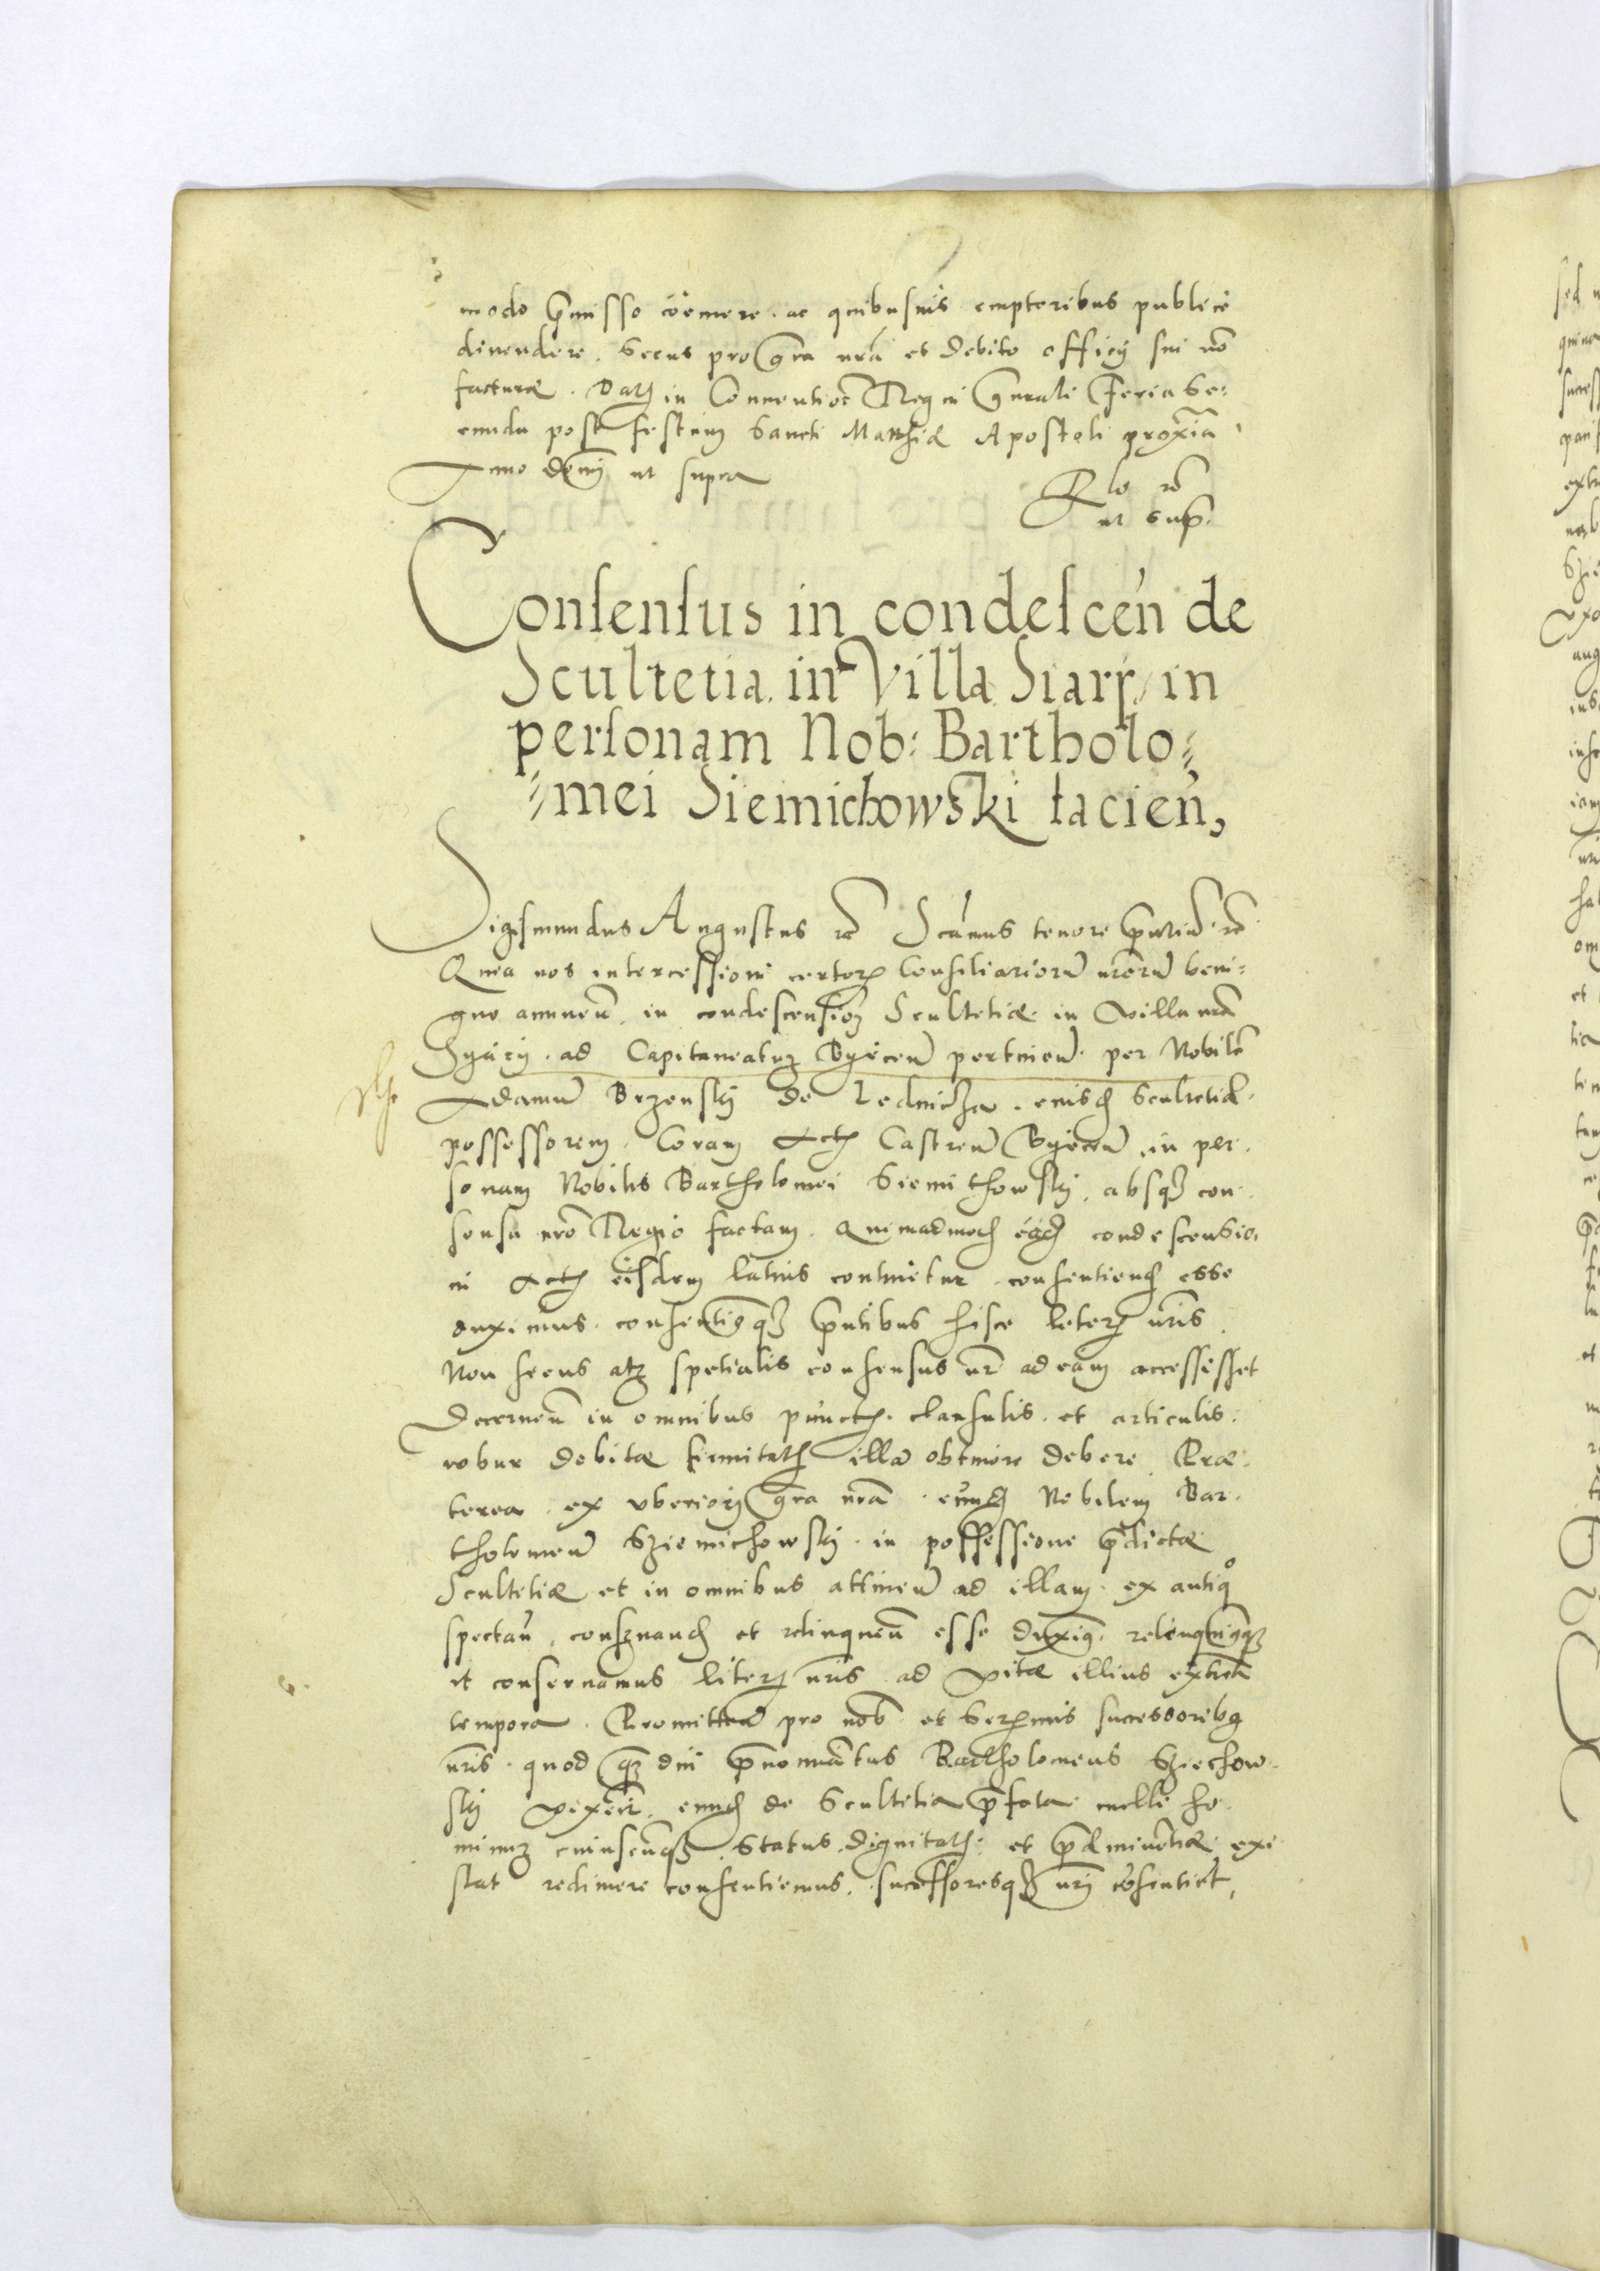 modo pmisso coemere. ac quibusuis emptoribus publice
diuendere. Secus pro gra nra et debito officij sui non
facturae. Dat in Conuentioe Regni gnrali Feria Se:
cunda post festum Sancti Matthiae Apostoli proxia
Anno domi ut supra
Rlo rc
ut sup.
Consensus in condescen de
Scultetia in Villa Siary in
personam Nob: Bartholo=
=mei Siemichowski facien,
Sigismundus Augustus rc tenore pntium rc
Quia nos intercessioni certor Consiliarioru nroru beni=
gno annuen. in condescension Scultetiae in Villa nra
Syary. ad Capitaneatum Byecen pertinen. per Nobile
Adamu Brzensky de Lednicza. eiusd Scultetiae
possessorem. Coram Act Castren Byecen in per
sonam Nobilis Bartholomei Siemichowsky. absq con
sensu nro Regio factam. Quemadmod ead condescensio
in Act eisdem latius continetur. consentiend esse
duximus. consentimusq pntibus hisce leter nris
Non secus atq spetialis consensus nr ad eam accessisset
Decernen in omnibus punct. clausulis. et articulis.
robur debitae firmitat illa obtinere debere. Prae
terea. ex vberiori gra nra. eund Nobilem Bar
tholomeu Sziemichowsky. in possessione pdictae
Scultetiae et in omnibus attinen ad illam. ex antiqo
spectan. conseruand et relinquen esse duximus. relinquimusq
et conseruamus liter nris ad vitae illius extrema
tempora. Promitten pro nob et Sermis successoribus
nris. quod q diu pnominatus Bartholomeus Sziechow
sky vixerit. eund de Scultetia pfata nulli ho
minum cuiuscunq Status. dignitat. et peminentiae exi
stat redimere consentiemus. successoresq nri cosentient,